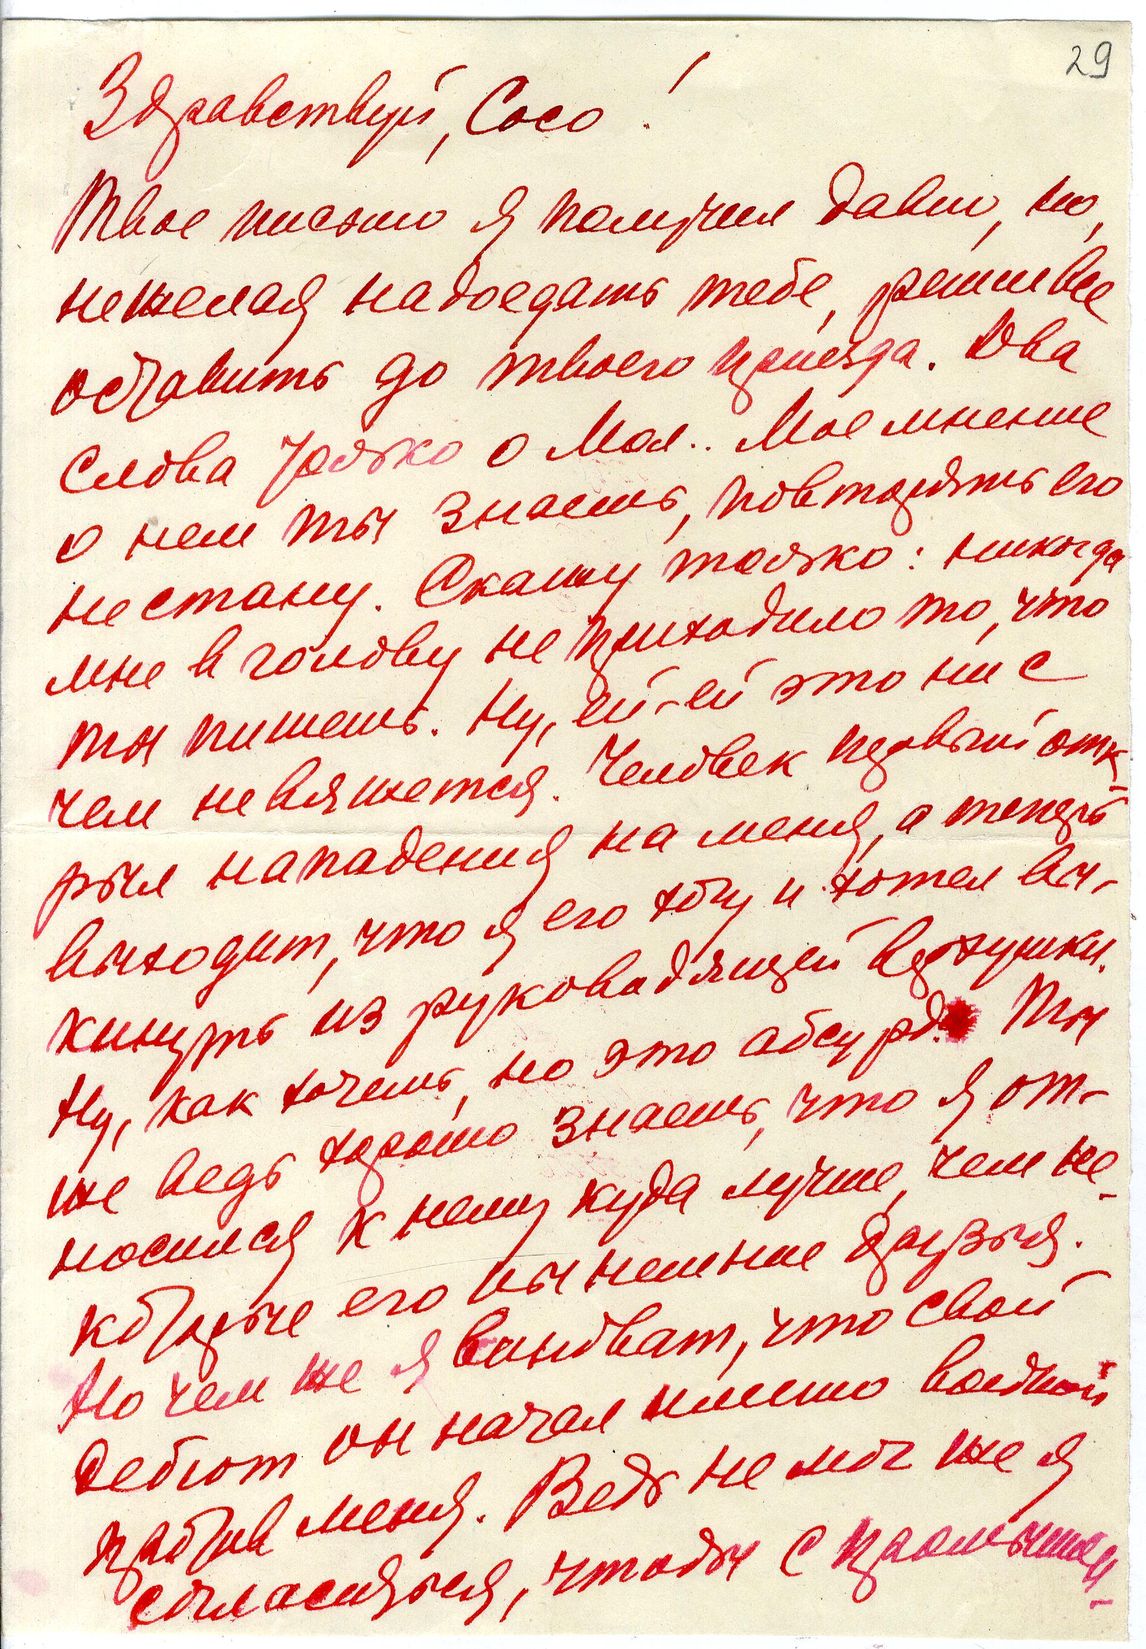 29
Здравствуй, Сосо!
Твое письмо я получил давно, но,
не желая надоедать тебе, решил все
оставить до твоего приезда. Два
слова только о Мол.. Мое мнение
о нем ты знаешь, повторять его
не стану. Скажу только: никогда
мне в голову не приходило то, что
ты пишешь. Ну, ей-ей это ни с
чем не вяжется. Человек первый отк-
рыл нападения на меня, а теперь
выходит, что я его хочу и хотел вы-
кинуть из руководящей верхушки.
Ну, как хочешь, но это абсурд. Ты
же ведь хорошо знаешь, что я от-
носился к нему куда лучше, чем не-
которые его нынешние друзья.
Но чем же я виноват, что свой
дебют он начал именно войной
против меня. Ведь не мог же я
согласиться, чтобы с промышлен-